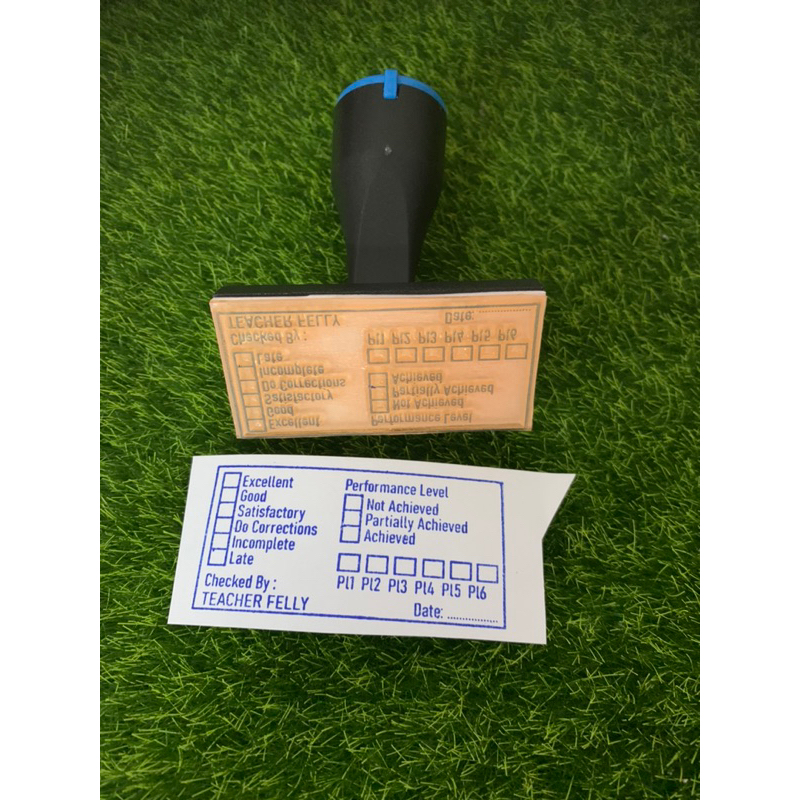 TEACHER FELLY
Checked By :
Late
Incomplete
Do Corrections
Satisfactory
Good
Excellent
Date: ..................
Pl1 Pl2 Pl3 Pl4 Pl5 Pl6
Achieved
Partially Achieved
Not Achieved
Performance Level
Excellent
Good
Satisfactory
Do Corrections
Incomplete
Late
Checked By :
TEACHER FELLY
Performance Level
Not Achieved
Partially Achieved
Achieved
Pl1 Pl2 Pl3 Pl4 Pl5 Pl6
Date: ..................